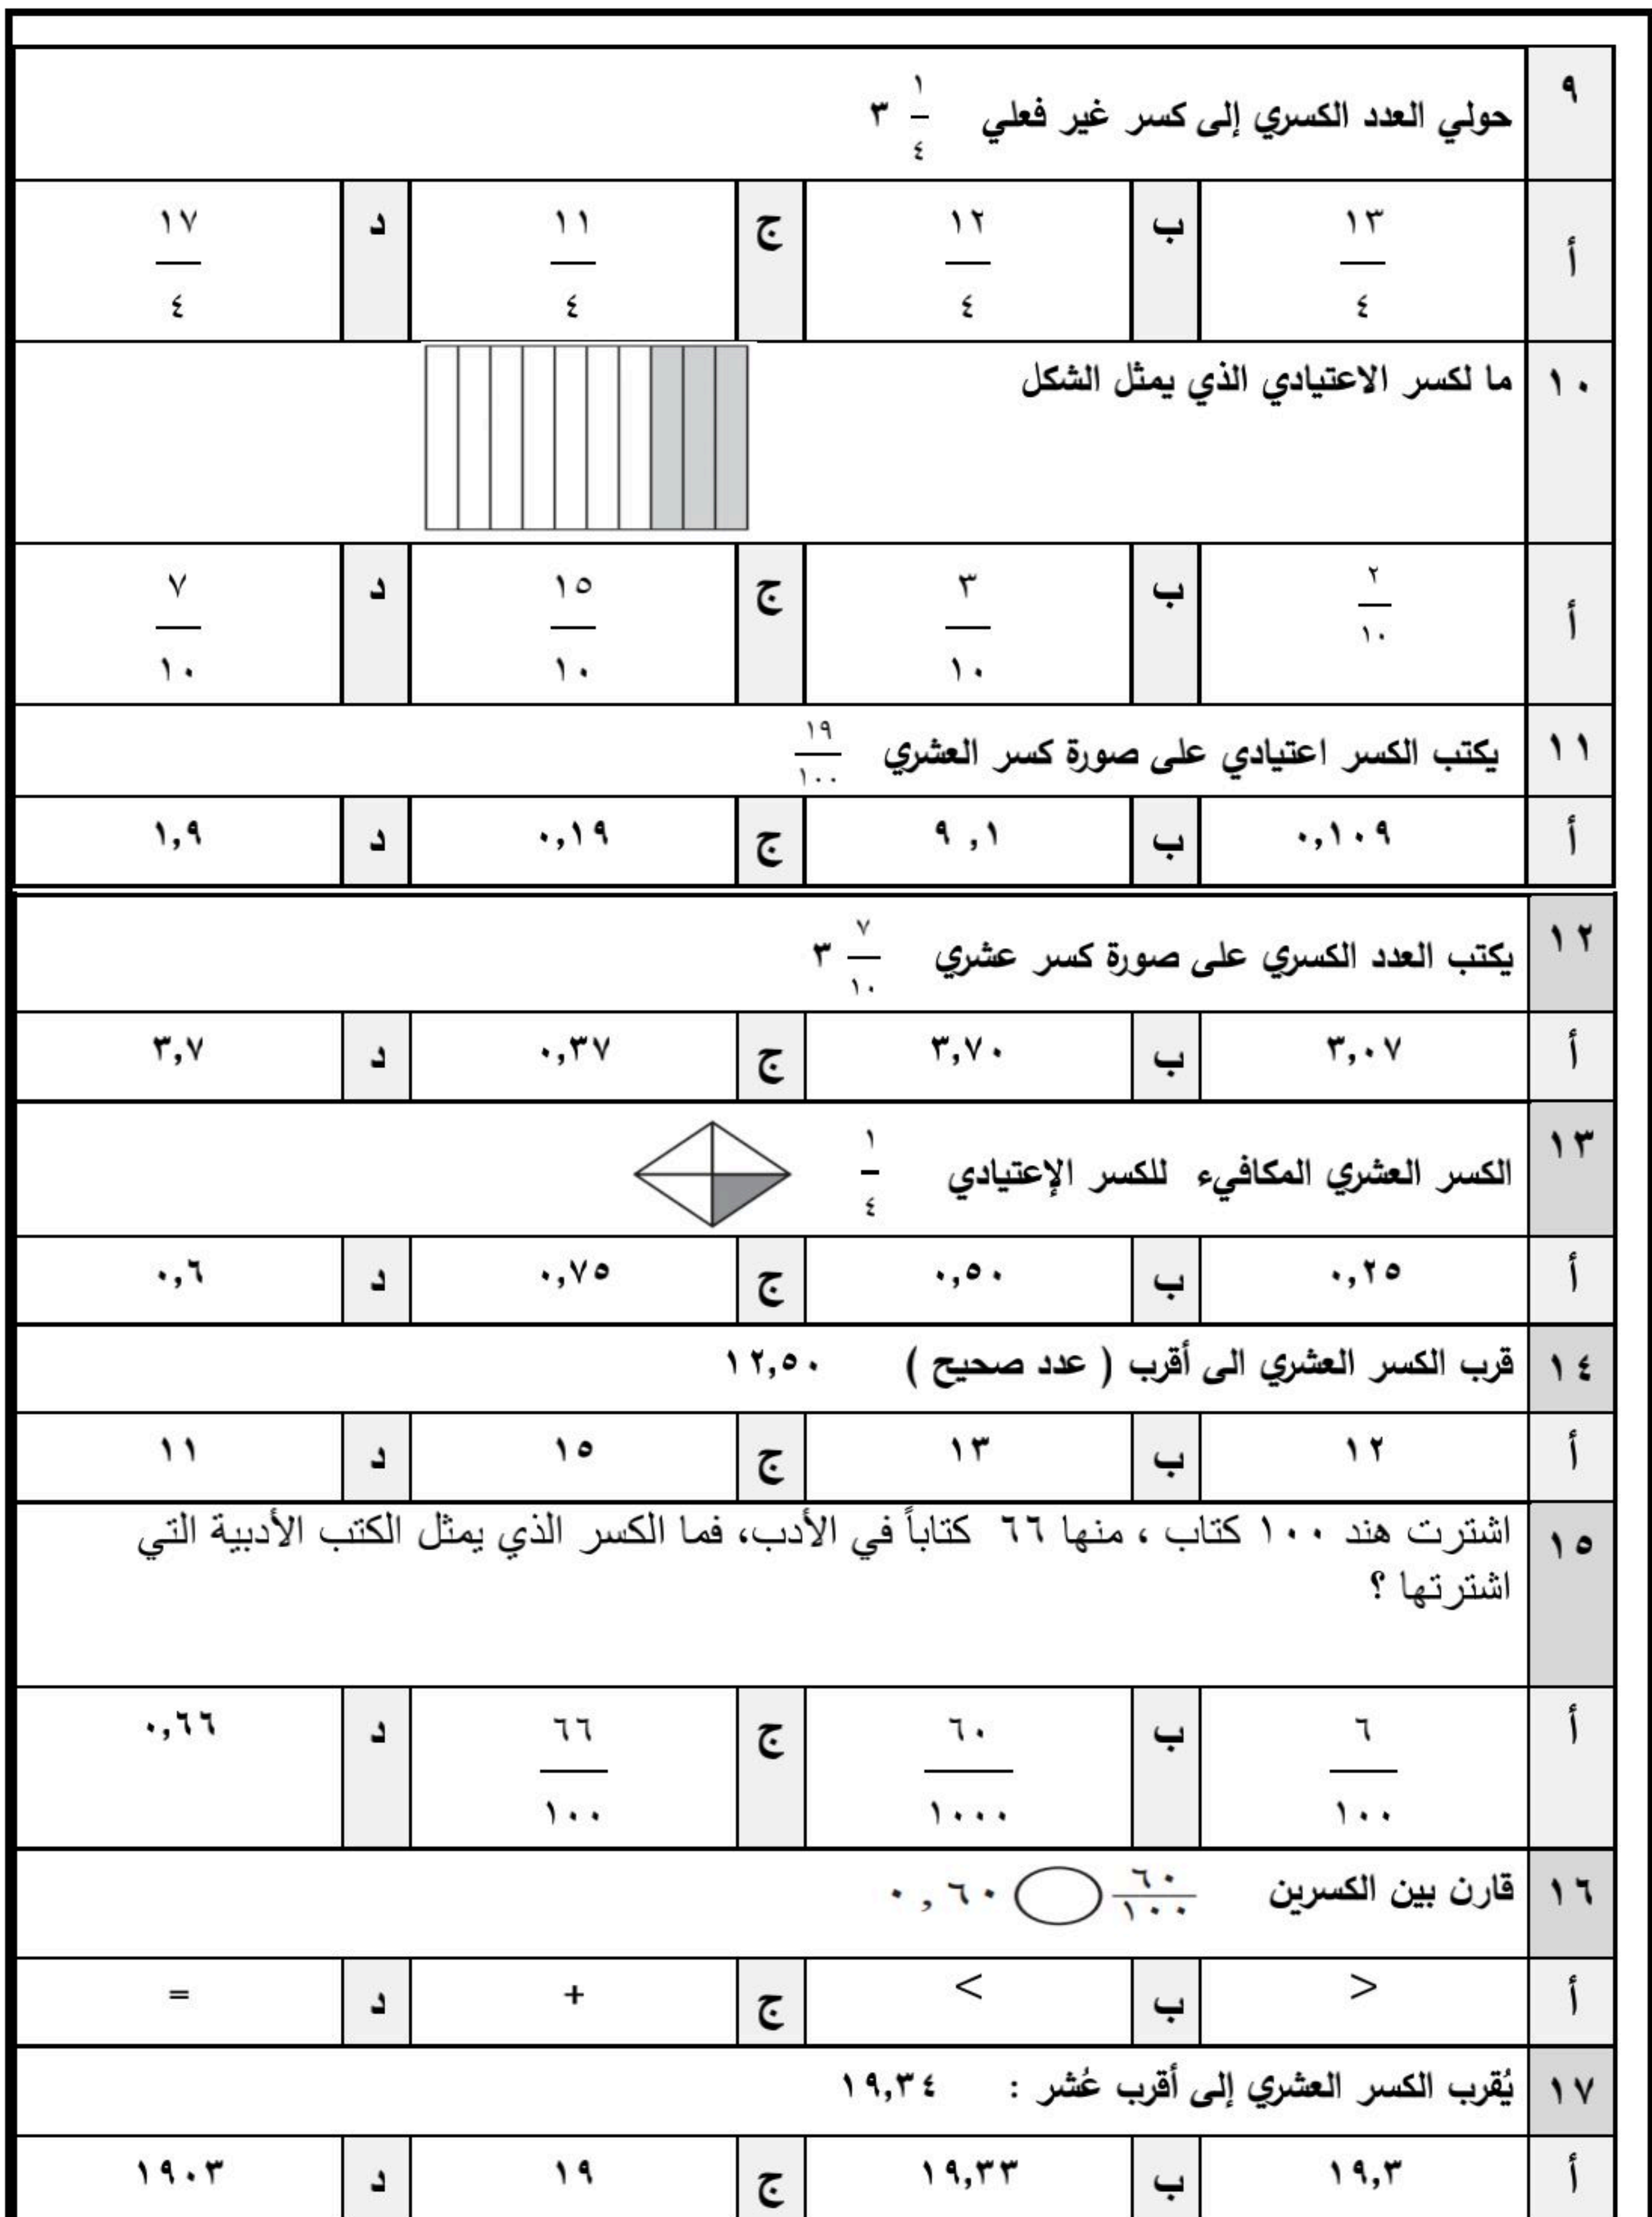 ٩ حولي العدد الكسري إلى كسر غير فعلي ٣ ١/٤
أ ١٣/٤ ب ١٢/٤ ج ١١/٤ د ١٧/٤
١٠ ما لكسر الاعتيادي الذي يمثل الشكل
أ ٢/١٠ ب ٣/١٠ ج ١٥/١٠ د ٧/١٠
١١ يكتب الكسر اعتيادي على صورة كسر العشري ١٩/١٠٠
أ ٠,١٠٩ ب ٩ ,١ ج ٠,١٩ د ١,٩
١٢ يكتب العدد الكسري على صورة كسر عشري ٣ ٧/١٠
أ ٣,٠٧ ب ٣,٧٠ ج ٠,٣٧ د ٣,٧
١٣ الكسر العشري المكافيء للكسر الإعتيادي ١/٤
أ ٠,٢٥ ب ٠,٥٠ ج ٠,٧٥ د ٠,٦
١٤ قرب الكسر العشري الى أقرب ( عدد صحيح ) ١٢,٥٠
أ ١٢ ب ١٣ ج ١٥ د ١١
١٥ اشترت هند ١٠٠ كتاب ، منها ٦٦ كتاباً في الأدب، فما الكسر الذي يمثل الكتب الأدبية التي
اشترتها ؟
أ ٦/١٠٠ ب ٦٠/١٠٠٠ ج ٦٦/١٠٠ د ٠,٦٦
١٦ قارن بين الكسرين ٦٠/١٠٠ ٠,٦٠
أ > ب < ج + د =
١٧ يُقرب الكسر العشري إلى أقرب عُشر : ١٩,٣٤
أ ١٩,٣ ب ١٩,٣٣ ج ١٩ د ١٩٠٣